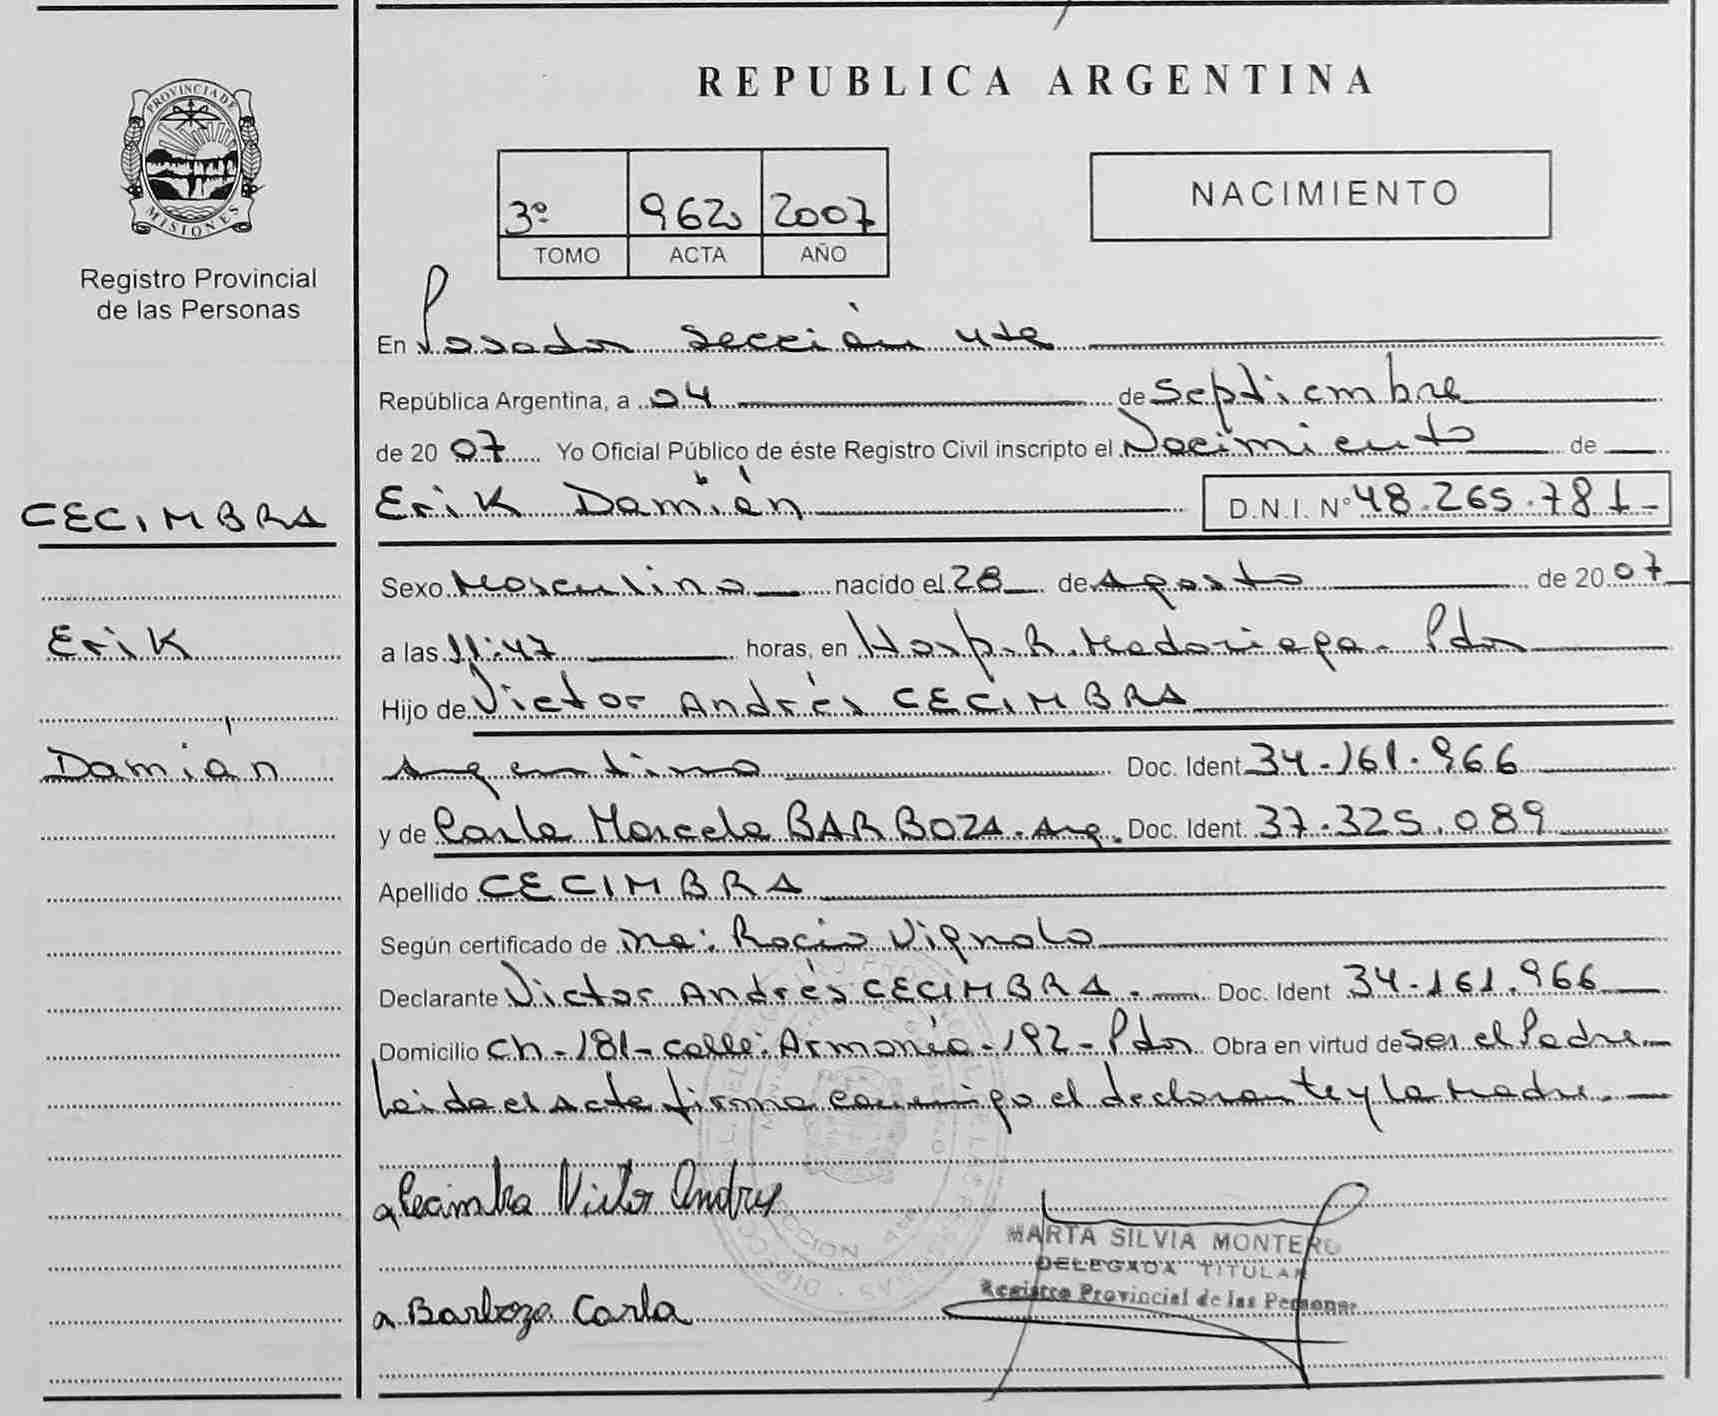 PROVINCIA DE
MISIONES
Registro Provincial
de las Personas
REPUBLICA ARGENTINA
3º 962 2007
TOMO ACTA AÑO
NACIMIENTO
En Posadas sección 4ta
República Argentina, a 04 de Septiembre
de 20 07 Yo Oficial Público de éste Registro Civil inscripto el Nacimiento de
CECIMBRA
Erik Damián D.N.I. Nº 48.265.781
Sexo Masculino nacido el 28 de Agosto de 20 07
Erik
a las 11:47 horas, en Hosp. R. Madariaga. Pdas
Hijo de Victor Andrés CECIMBRA
Damián
Argentino Doc. Ident 34.161.966
y de Carla Marcela BARBOZA. Arg. Doc. Ident. 37.325.089
Apellido CECIMBRA
Según certificado de Rocio Vignolo
Declarante Victor Andrés CECIMBRA. Doc. Ident 34.161.966
Domicilio Ch-181-calle: Armonía-192-Pdas Obra en virtud de ser el Padre
Leida el Acta firma conmigo el declarante y la Madre.
Cecimbra Victor Andres
MARTA SILVIA MONTERO
DELEGADA TITULAR
Registro Provincial de las Personas
Barboza Carla